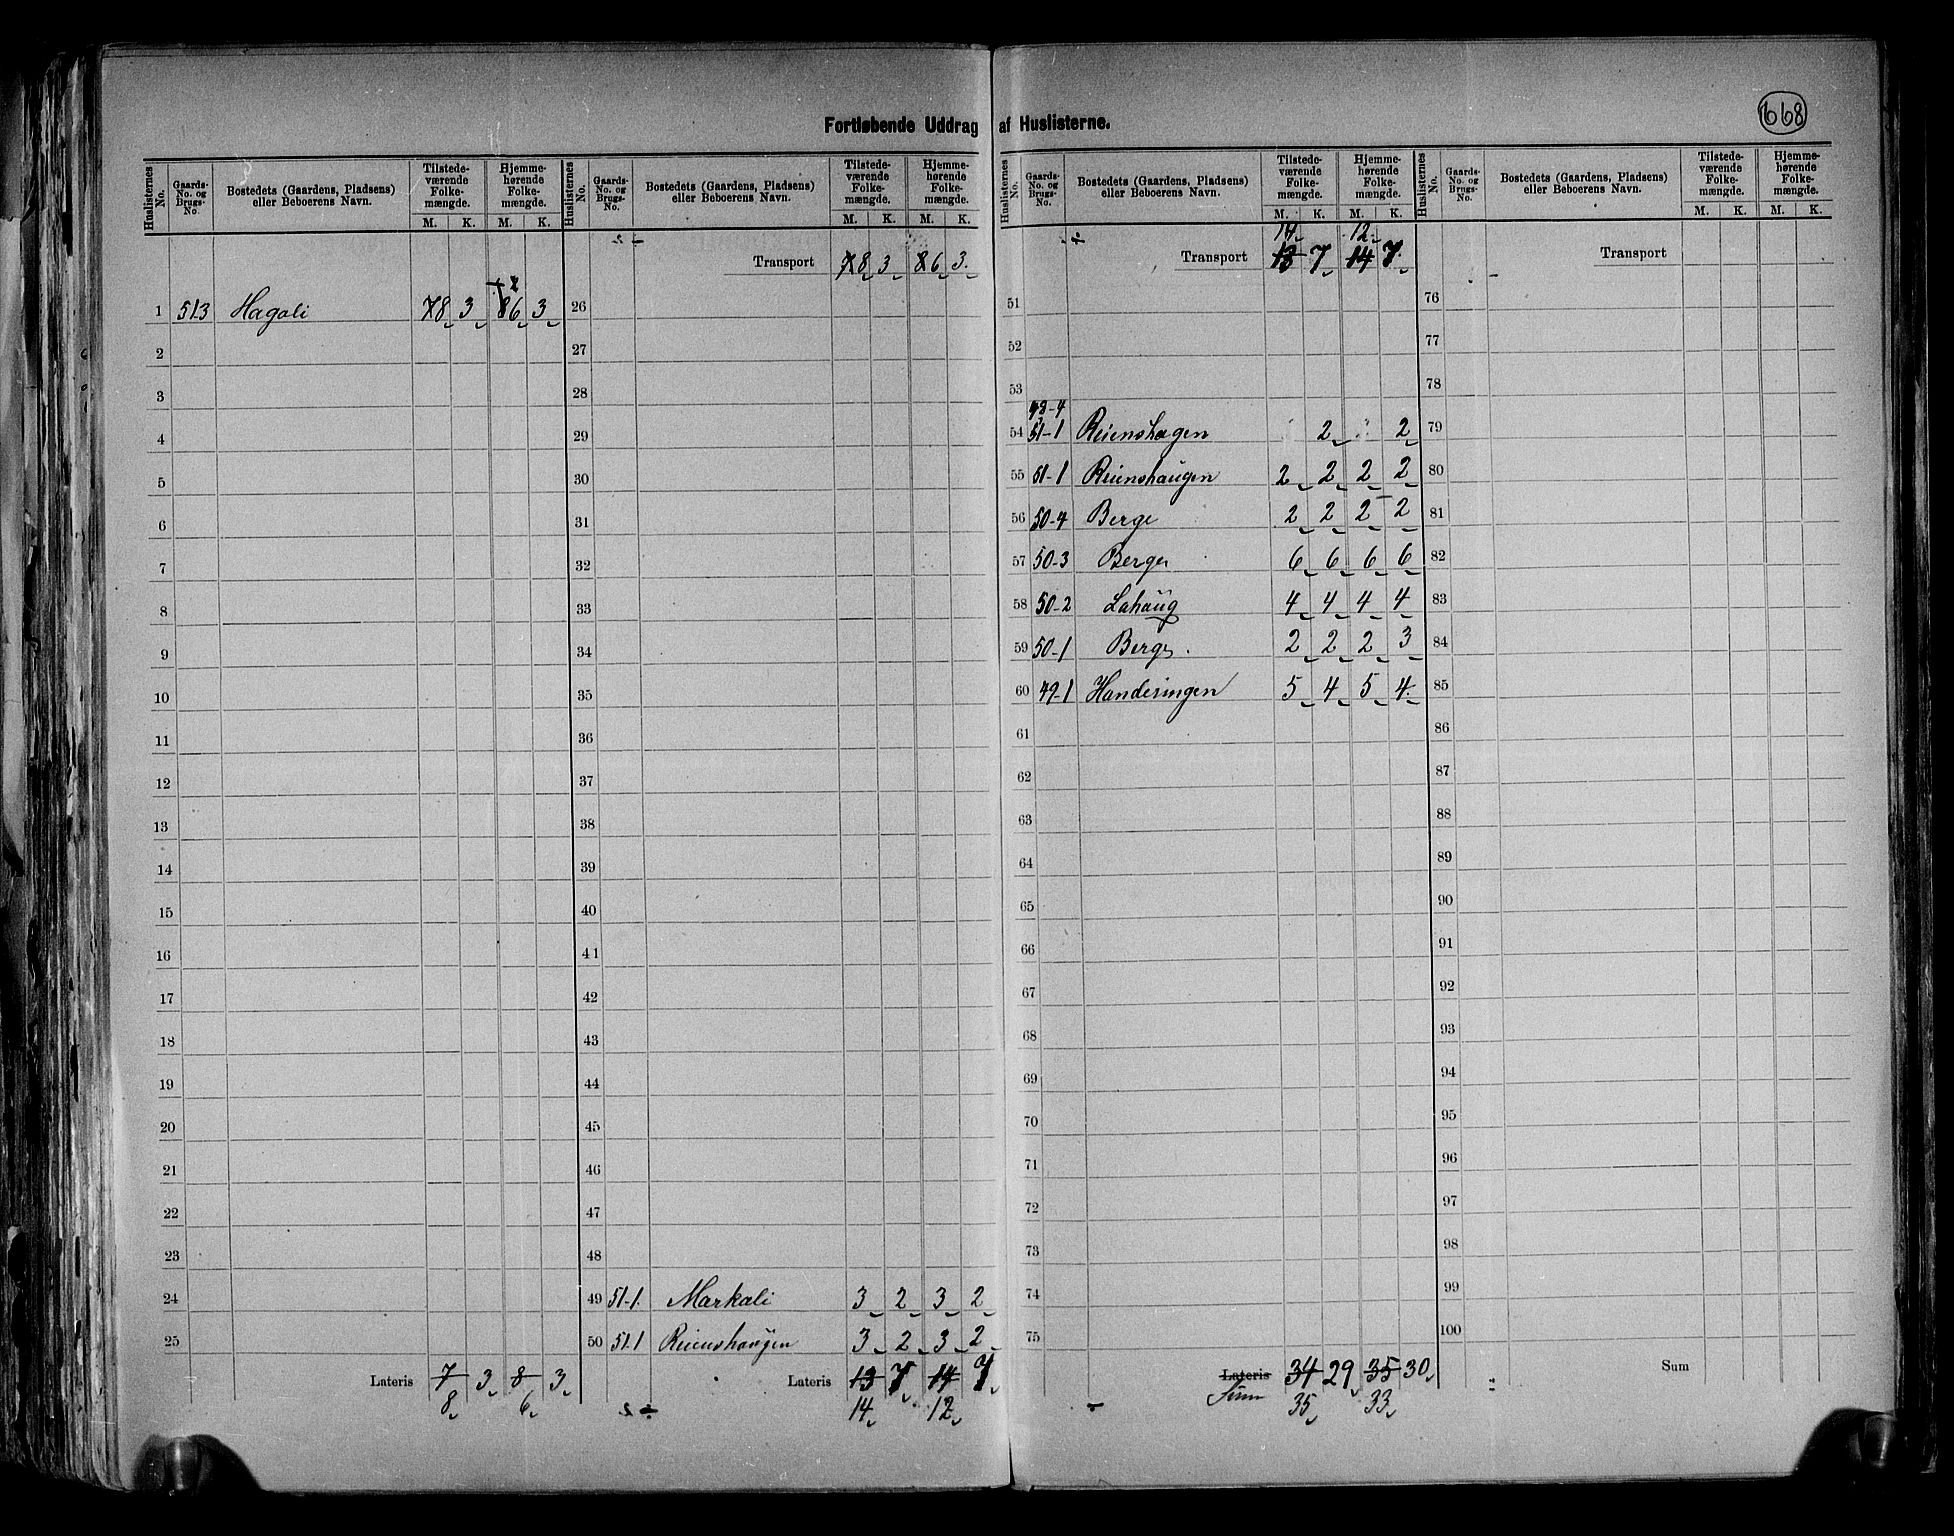 668
Fortløbende Uddrag af Huslisterne.
Huslisternes No. Gaards-No. og Brugs-No. Bostedets (Gaardens, Pladsens) eller Beboerens Navn. Tilstedeværende Folkemængde. M. K. Hjemmehørende Folkemængde. M. K.
1 51.3 Hagali 7 8 3 8 6 3
2
3
4
5
6
7
8
9
10
11
12
13
14
15
16
17
18
19
20
21
22
23
24
25
Lateris 7 3 8 3
8 6
Huslisternes No. Gaards-No. og Brugs-No. Bostedets (Gaardens, Pladsens) eller Beboerens Navn. Tilstedeværende Folkemængde. M. K. Hjemmehørende Folkemængde. M. K.
Transport 7 8 3 8 6 3
26
27
28
29
30
31
32
33
34
35
36
37
38
39
40
41
42
43
44
45
46
47
48
49 51-1 Markali 3 2 3 2
50 51.1 Reienshaugen 3 2 3 2
Lateris 13 7 14 7
14 12
Huslisternes No. Gaards-No. og Brugs-No. Bostedets (Gaardens, Pladsens) eller Beboerens Navn. Tilstedeværende Folkemængde. M. K. Hjemmehørende Folkemængde. M. K.
14 12
Transport 13 7 14 7
51
52
53
54 51-1 Reienshagen 2 2
55 51-1 Reienshaugen 2 2 2 2
56 50-4 Berge 2 2 2 2
57 50-3 Berge 6 6 6 6
58 50-2 Lahaug 4 4 4 4
59 50-1 Berge 2 2 2 3
60 49-1 Handeringen 5 4 5 4
61
62
63
64
65
66
67
68
69
70
71
72
73
74
75
Lateris 34 29 35 30
Sum 35 33
Huslisternes No. Gaards-No. og Brugs-No. Bostedets (Gaardens, Pladsens) eller Beboerens Navn. Tilstedeværende Folkemængde. M. K. Hjemmehørende Folkemængde. M. K.
Transport
76
77
78
79
80
81
82
83
84
85
86
87
88
89
90
91
92
93
94
95
96
97
98
99
100
Sum